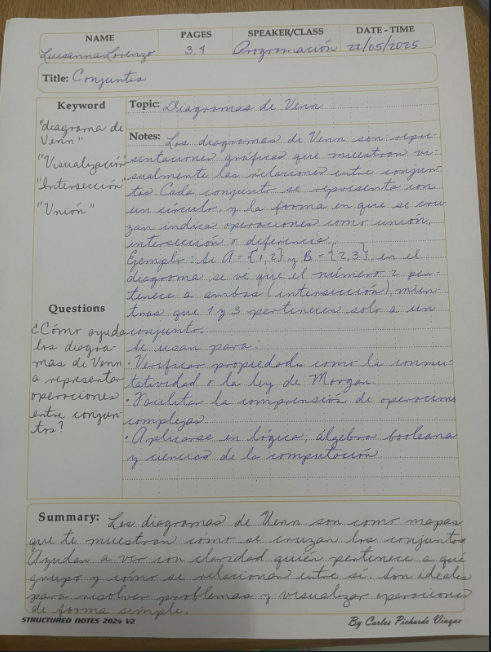 NAME PAGES SPEAKER/CLASS DATE - TIME
Luisanna Lorenzo 3.4 Programación 22/05/2025
Title: Conjuntos
Keyword
"diagrama de
Venn"
"Visualización"
"Intersección"
"Unión"
Topic: Diagramas de Venn
Notes: Los diagramas de Venn son repre-
sentaciones gráficas que muestran vi-
sualmente las relaciones entre conjun-
tos. Cada conjunto se representa con
un círculo, y la forma en que se cru-
zan indica operaciones como unión,
intersección o diferencia.
Ejemplo: Si A = {1,2} y B = {2,3}, en el
diagrama se ve que el número 2 per-
tenece a ambos (intersección), mien-
tras que 1 y 3 pertenecen solo a un
conjunto.
Se usan para:
• Verificar propiedades como la conmu-
tatividad o la ley de Morgan
• Facilitar la comprensión de operaciones
complejas
• Aplicarse en lógica, álgebra booleana
y ciencias de la computación
Questions
¿Cómo ayuda
los diagra-
mas de Venn
a representar
operaciones
entre conjun-
tos?
Summary: Los diagramas de Venn son como mapas
que te muestran cómo se cruzan los conjuntos
Ayudan a ver con claridad quién pertenece a qué
grupo y cómo se relacionan entre sí. Son ideales
para resolver problemas y visualizar operaciones
de forma simple.
STRUCTURED NOTES 2024 V2 By Carlos Pichardo Viuque